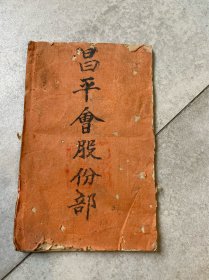 昌平會股份部